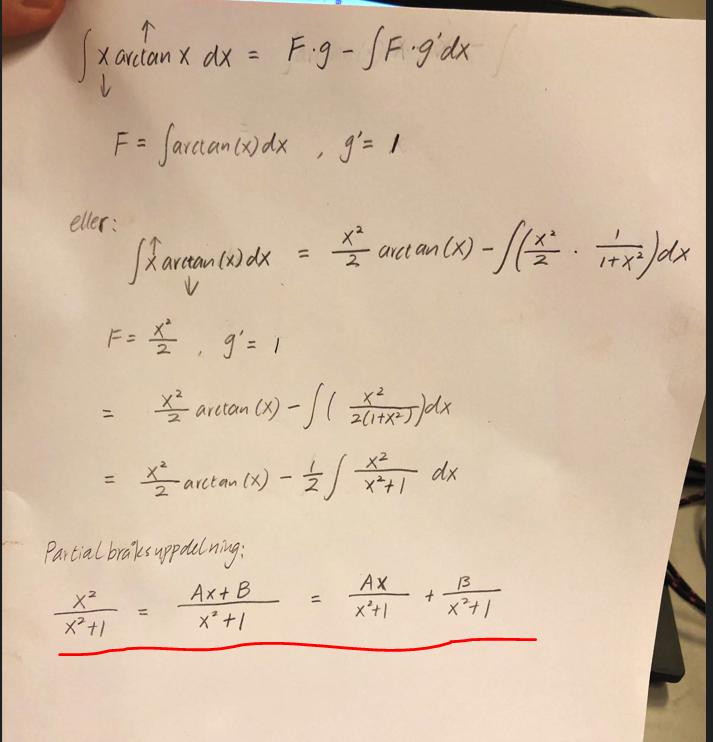 ∫ x arctan x dx = F·g - ∫F·g'dx
F = ∫arctan(x)dx , g' = 1
eller:
∫ x arctan(x)dx = x²/2 arctan(x) - ∫(x²/2 · 1/1+x²)dx
F = x²/2 , g' = 1
= x²/2 arctan(x) - ∫( x²/2(1+x²) )dx
= x²/2 arctan(x) - 1/2 ∫ x²/x²+1 dx
Partialbråksuppdelning:
x²/x²+1 = Ax+B/x²+1 = Ax/x²+1 + B/x²+1